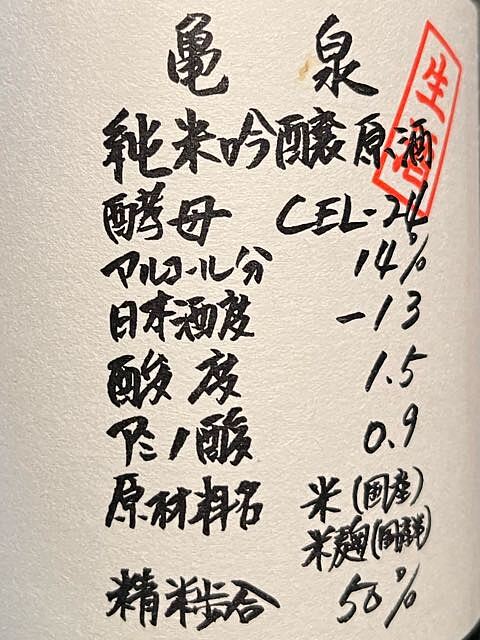 亀泉
純米吟醸原酒
生酒
酵母 CEL-24
アルコール分 14%
日本酒度 -13
酸度 1.5
アミノ酸 0.9
原材料名 米(国産)
米麹(国産)
精米歩合 50%